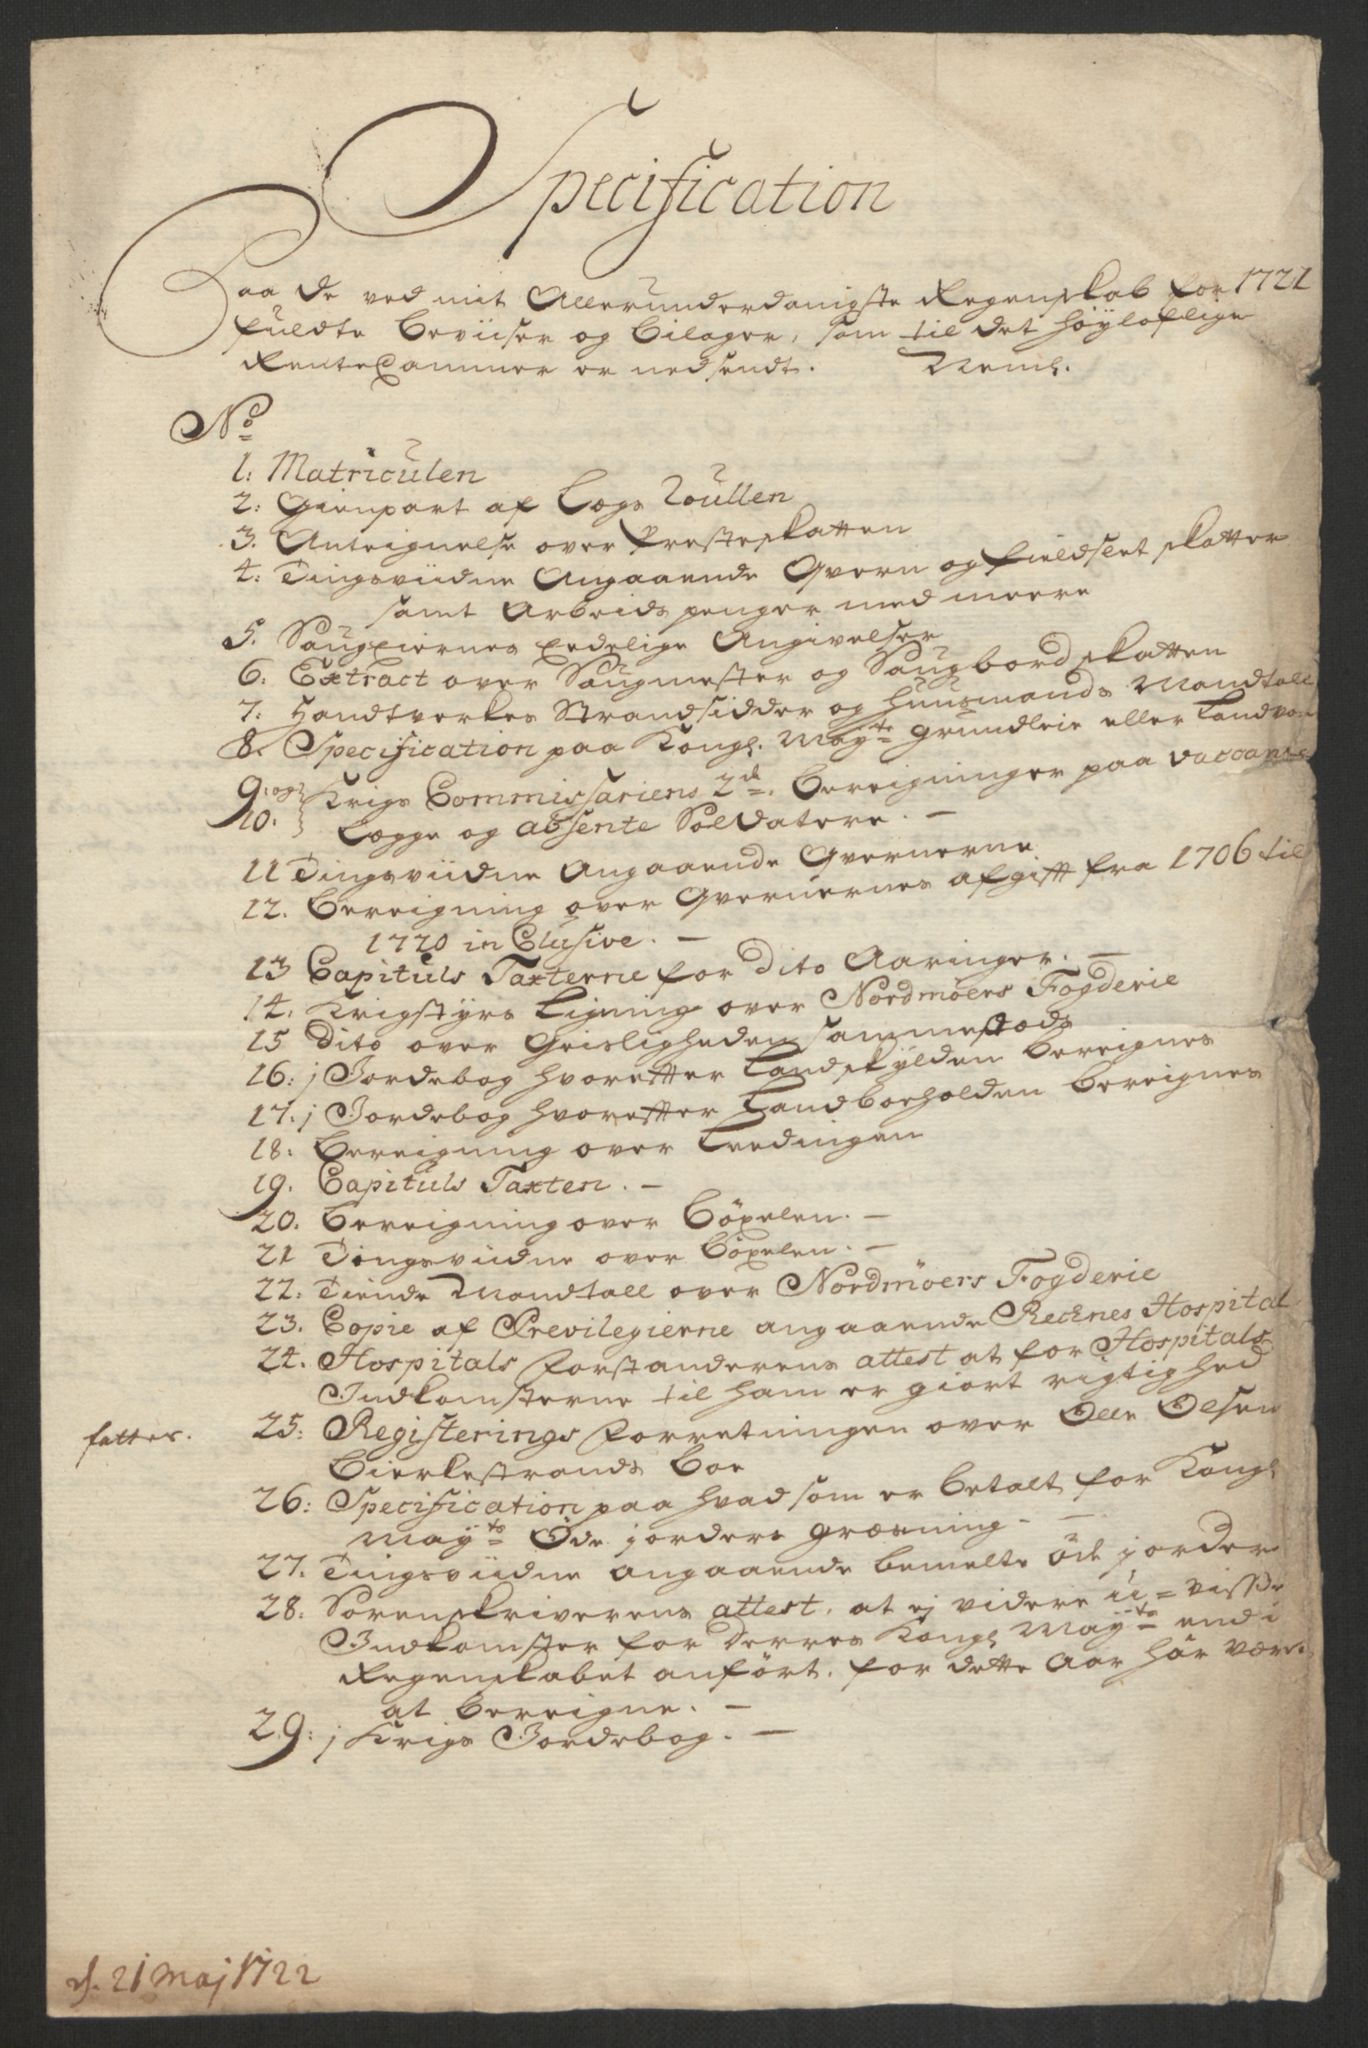 Specification
Paa de ved mit Allerunderdanigste Regenskab for 1721
fuldte beviiser og bilager, som til det höyloflige
RenteCammer er nedsendt. Neml.
No
1: Matriculen
2: Gienpart af Legs Roullen
3. Anteignelse over Presteskatten
4: Tingsviidne Angaaende Qvern og fieldsert skatter
samt Arbeids penger med meere
5. Saugeiernes Eedelige Angivelser
6: Extract over Saugmester og Saugbord skatten
7: Handtverkes Strandsidder og Huusmands Mandtall
8. Specification paa Kongl. Mayts grundleie eller Landva
9: og
10. Krigs Commissariens 2de. bereigninger paa vaccante
Legge og absente Soldatere. —
11 Tingsviidne Angaaende Qvernerne
12. bereigning over Qvernernes afgift fra 1706 til
1720 inClusive. —
13 Capituls Taxterne for dito Aaringer. —
14. Krigstyrs Ligning over Nordmöers Fogderie
15 Dito over Geisligheden sammestods
16: j Jordebog hvorefter Landskylden bereignes
17. j Jordebog hvorefter Landboeholden bereignes
18: bereigning over Leedingen
19. Capituls Taxten. —
20. bereigning over böxelen. —
21 Tingsviidne over böxelen. —
22. Tiende Mandtall over Nordmöers Fogderie
23. Copie af Previlegierne angaaende Recknes Hospital
24. Hospitals Forstanderens attest at for Hospitals
Indkomsterne til ham er giort rigtighed
fattes. 25: Registerings Forretningen over Olle Olsen
Bierkestrands boe
26: Specification paa hvad som er betalt for Kongl
Mayts Öde jorders græsning. —
27. Tingsviidne angaaende bemelte öde jorder
28: Sorenskriverens attest, at ej videre u=visse
Indkomster for Derres Kongl Mayts end i
Regenskabet anfört, for dette Aar har være
at bereigne. —
29: j Krigs Jordebog. —
d. 21 Maj 1722